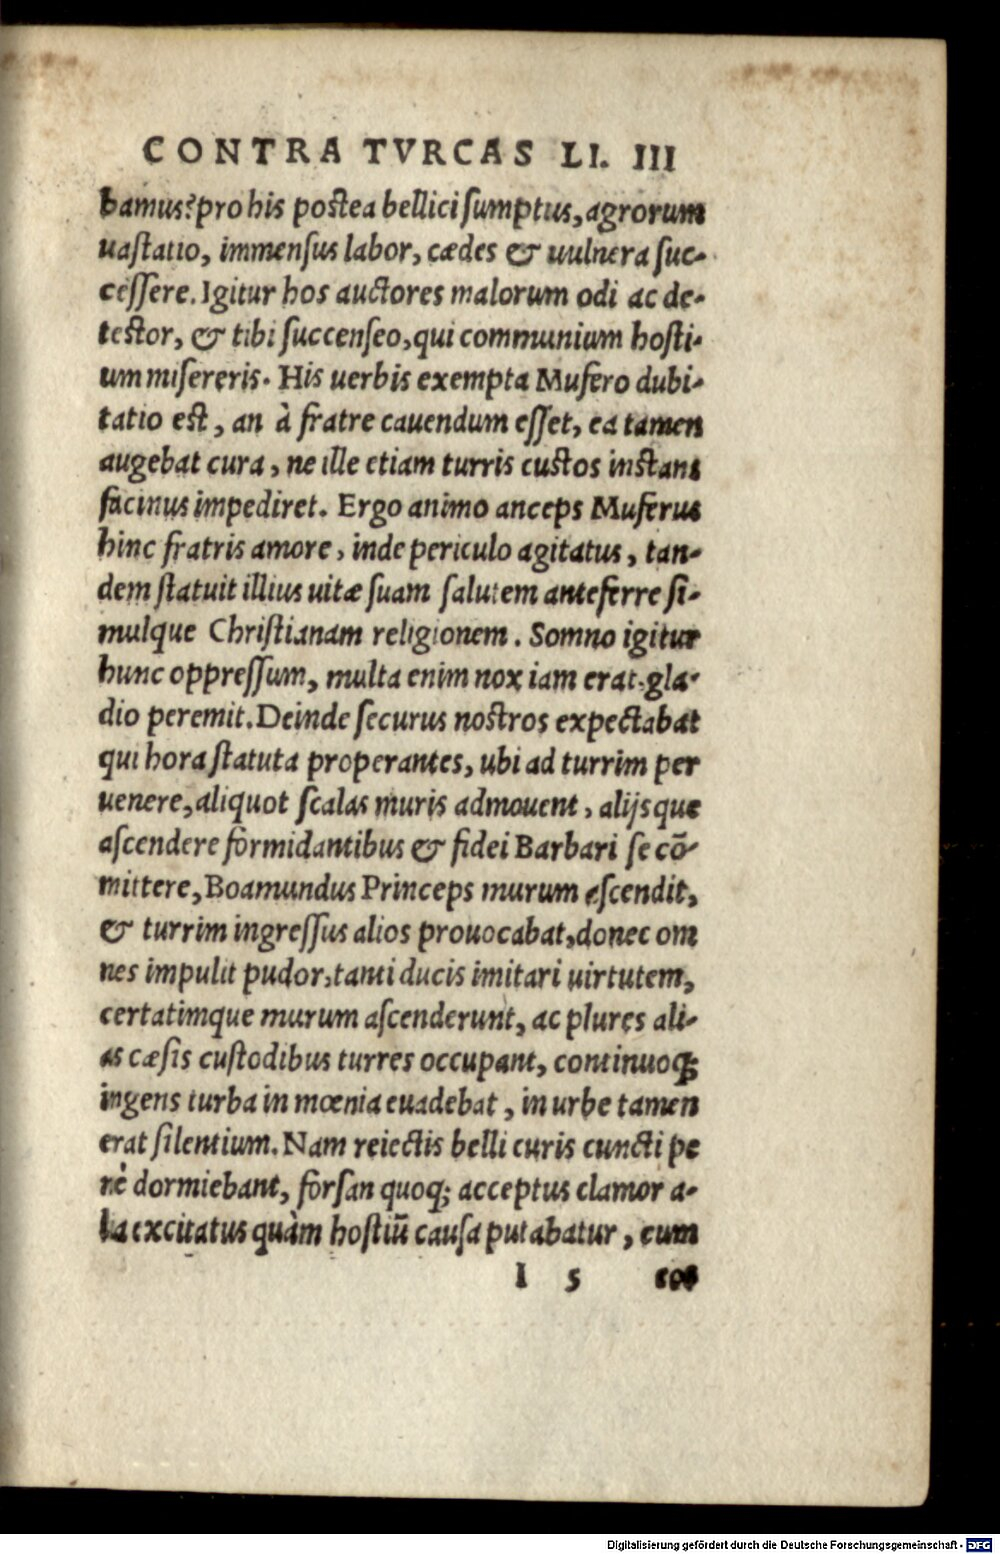 CONTRA TVRCAS LI. III
bamus? pro his postea bellici sumptus, agrorum
uastatio, immensus labor, cædes & uulnera suc-
cessere. Igitur hos auctores malorum odi ac de-
testor, & tibi succenseo, qui communium hosti-
um misereris. His uerbis exempta Musero dubi-
tatio est, an à fratre cauendum esset, ea tamen
augebat cura, ne ille etiam turris custos instans
facinus impediret. Ergo animo anceps Muserus
hinc fratris amore, inde periculo agitatus, tan-
dem statuit illius uitæ suam salutem anteferre si-
mulque Christianam religionem. Somno igitur
hunc oppressum, multa enim nox iam erat, gla-
dio peremit. Deinde securus nostros expectabat
qui hora statuta properantes, ubi ad turrim per
uenere, aliquot scalas muris admouent, alijsque
ascendere formidantibus & fidei Barbari se cõ-
mittere, Boamundus Princeps murum escendit,
& turrim ingressus alios prouocabat, donec om
nes impulit pudor, tanti ducis imitari uirtutem,
certatimque murum ascenderunt, ac plures ali-
as cæsis custodibus turres occupant, continuoq;
ingens turba in mœnia euadebat, in urbe tamen
erat silentium. Nam reiectis belli curis cuncti pe
nè dormiebant, forsan quoq; acceptus clamor a-
lia excitatus quàm hostiũ causa putabatur, cum
I 5
Digitalisierung gefördert durch die Deutsche Forschungsgemeinschaft - DFG